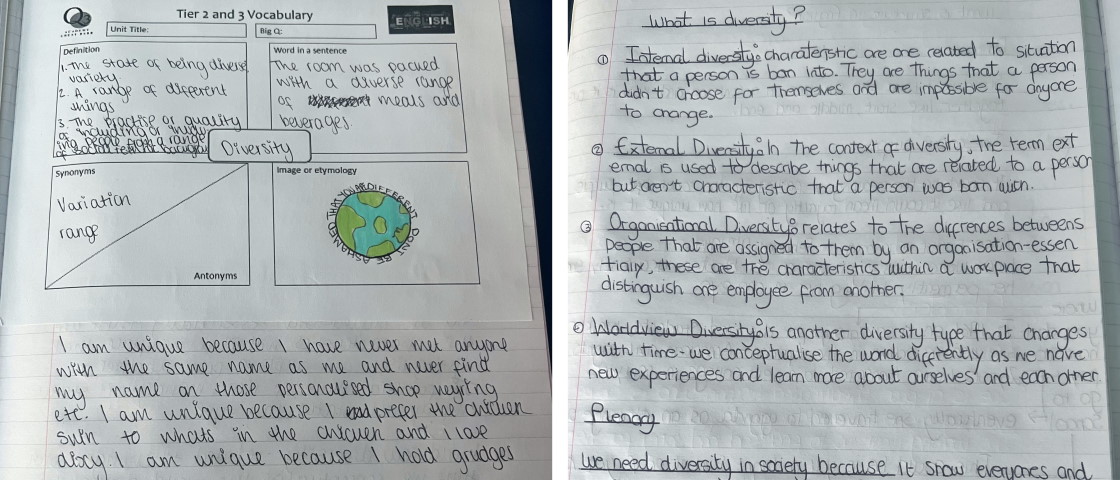 Tier 2 and 3 Vocabulary
ENGLISH
Unit Title:
Big Q:
Definition
1. The state of being diverse
variety.
2. A range of different
things
3. The practise or quality
of including or
ing people from a range
of
Word in a sentence
The room was packed
with a diverse range
of meals and
beverages.
Diversity
Synonyms
Variation
range
Antonyms
Image or etymology
THAT YOUR DIFFERENT
DON'T BE ASHAMED
I am unique because I have never met anyone
with the same name as me and never find
my name on those personalised shop keyring
etc. I am unique because I prefer the chicken
skin to whats in the chicken and I love
I am unique because I hold grudges
What is diversity?
① Internal diversity: charateristic are are related to situation
that a person is born into. They are things that a person
didn't choose for themselves and are impossible for anyone
to change.
② External Diversity: In the context of diversity, the term ext
ernal is used to describe things that are related to a person
but aren't characteristic that a person was born with.
③ Organisational Diversity: relates to the diffrences betweens
people that are assigned to them by an organisation-essen
tially, these are the characteristics within a workplace that
distinguish one employee from another.
Worldview Diversity: Is another diversity type that changes
with time - we conceptualise the world diffrently as we have
new experiences and learn more about ourselves and each other
Plenary
We need diversity in society because it show everyones and